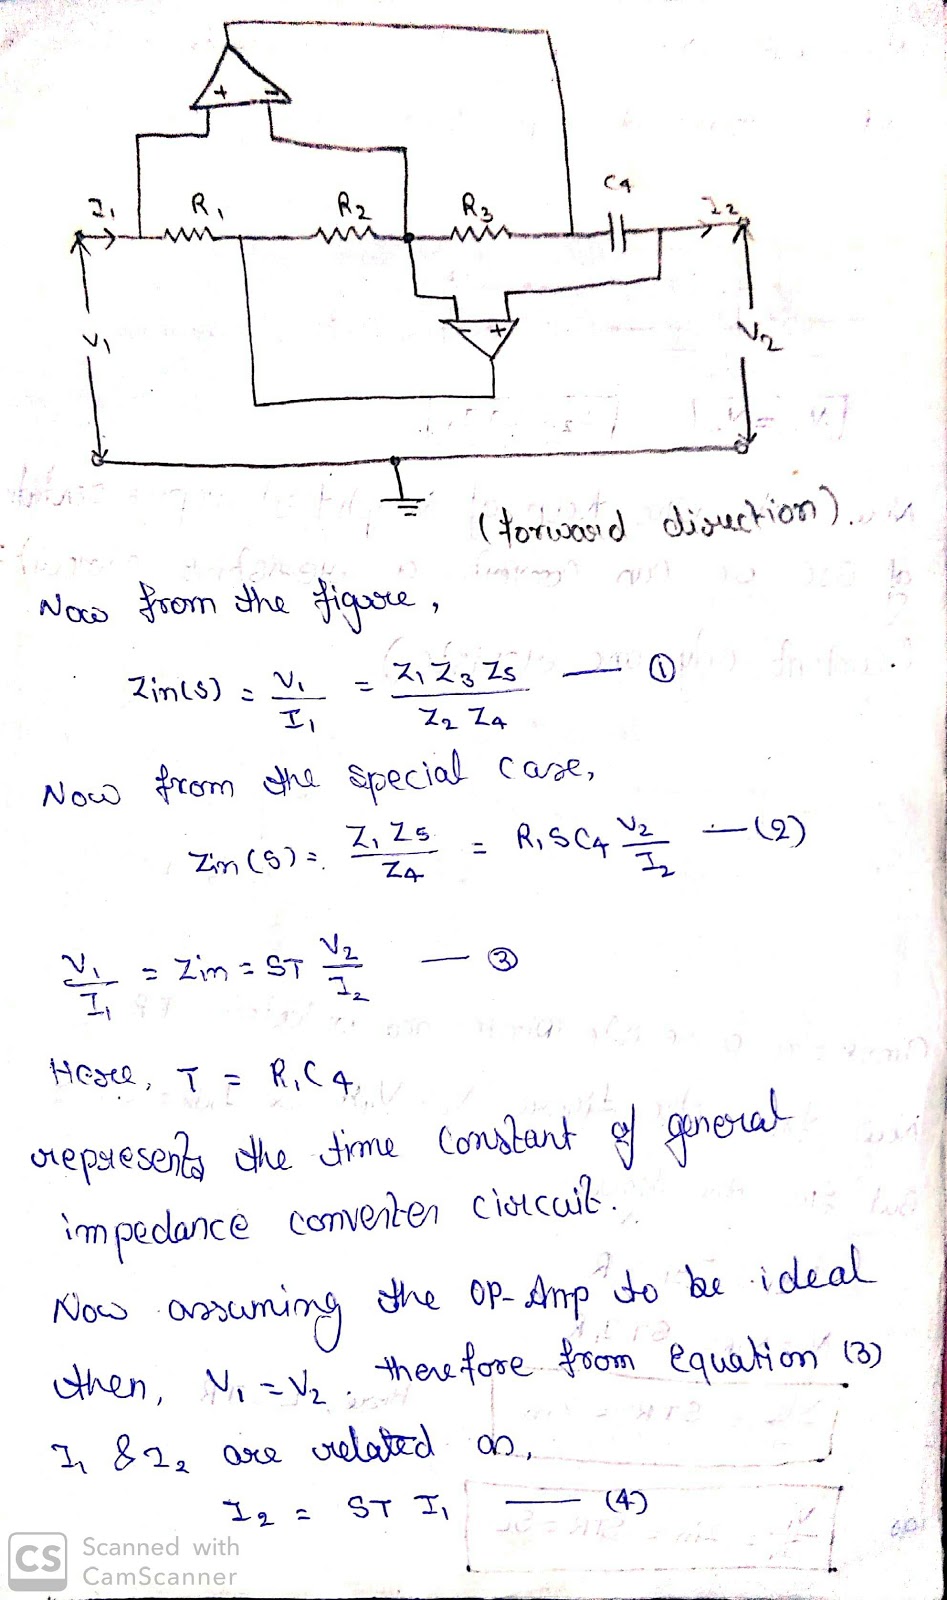 + -
C4
I1 R1 R2 R3 I2
- +
V1 V2
(forward direction).
Now from the figure,
Zin(s) = V1/I1 = Z1 Z3 Z5 / Z2 Z4 — ①
Now from the special case,
Zin(s) = Z1 Z5 / Z4 = R1 S C4 V2/I2 — (2)
V1/I1 = Zin = ST V2/I2 — ③
Here, T = R1C4
represents the time constant of general
impedance converter circuit.
Now assuming the OP-Amp to be ideal
then, V1 = V2. therefore from equation (3)
I1 & I2 are related as,
I2 = ST I1 — (4)
CS Scanned with
CamScanner